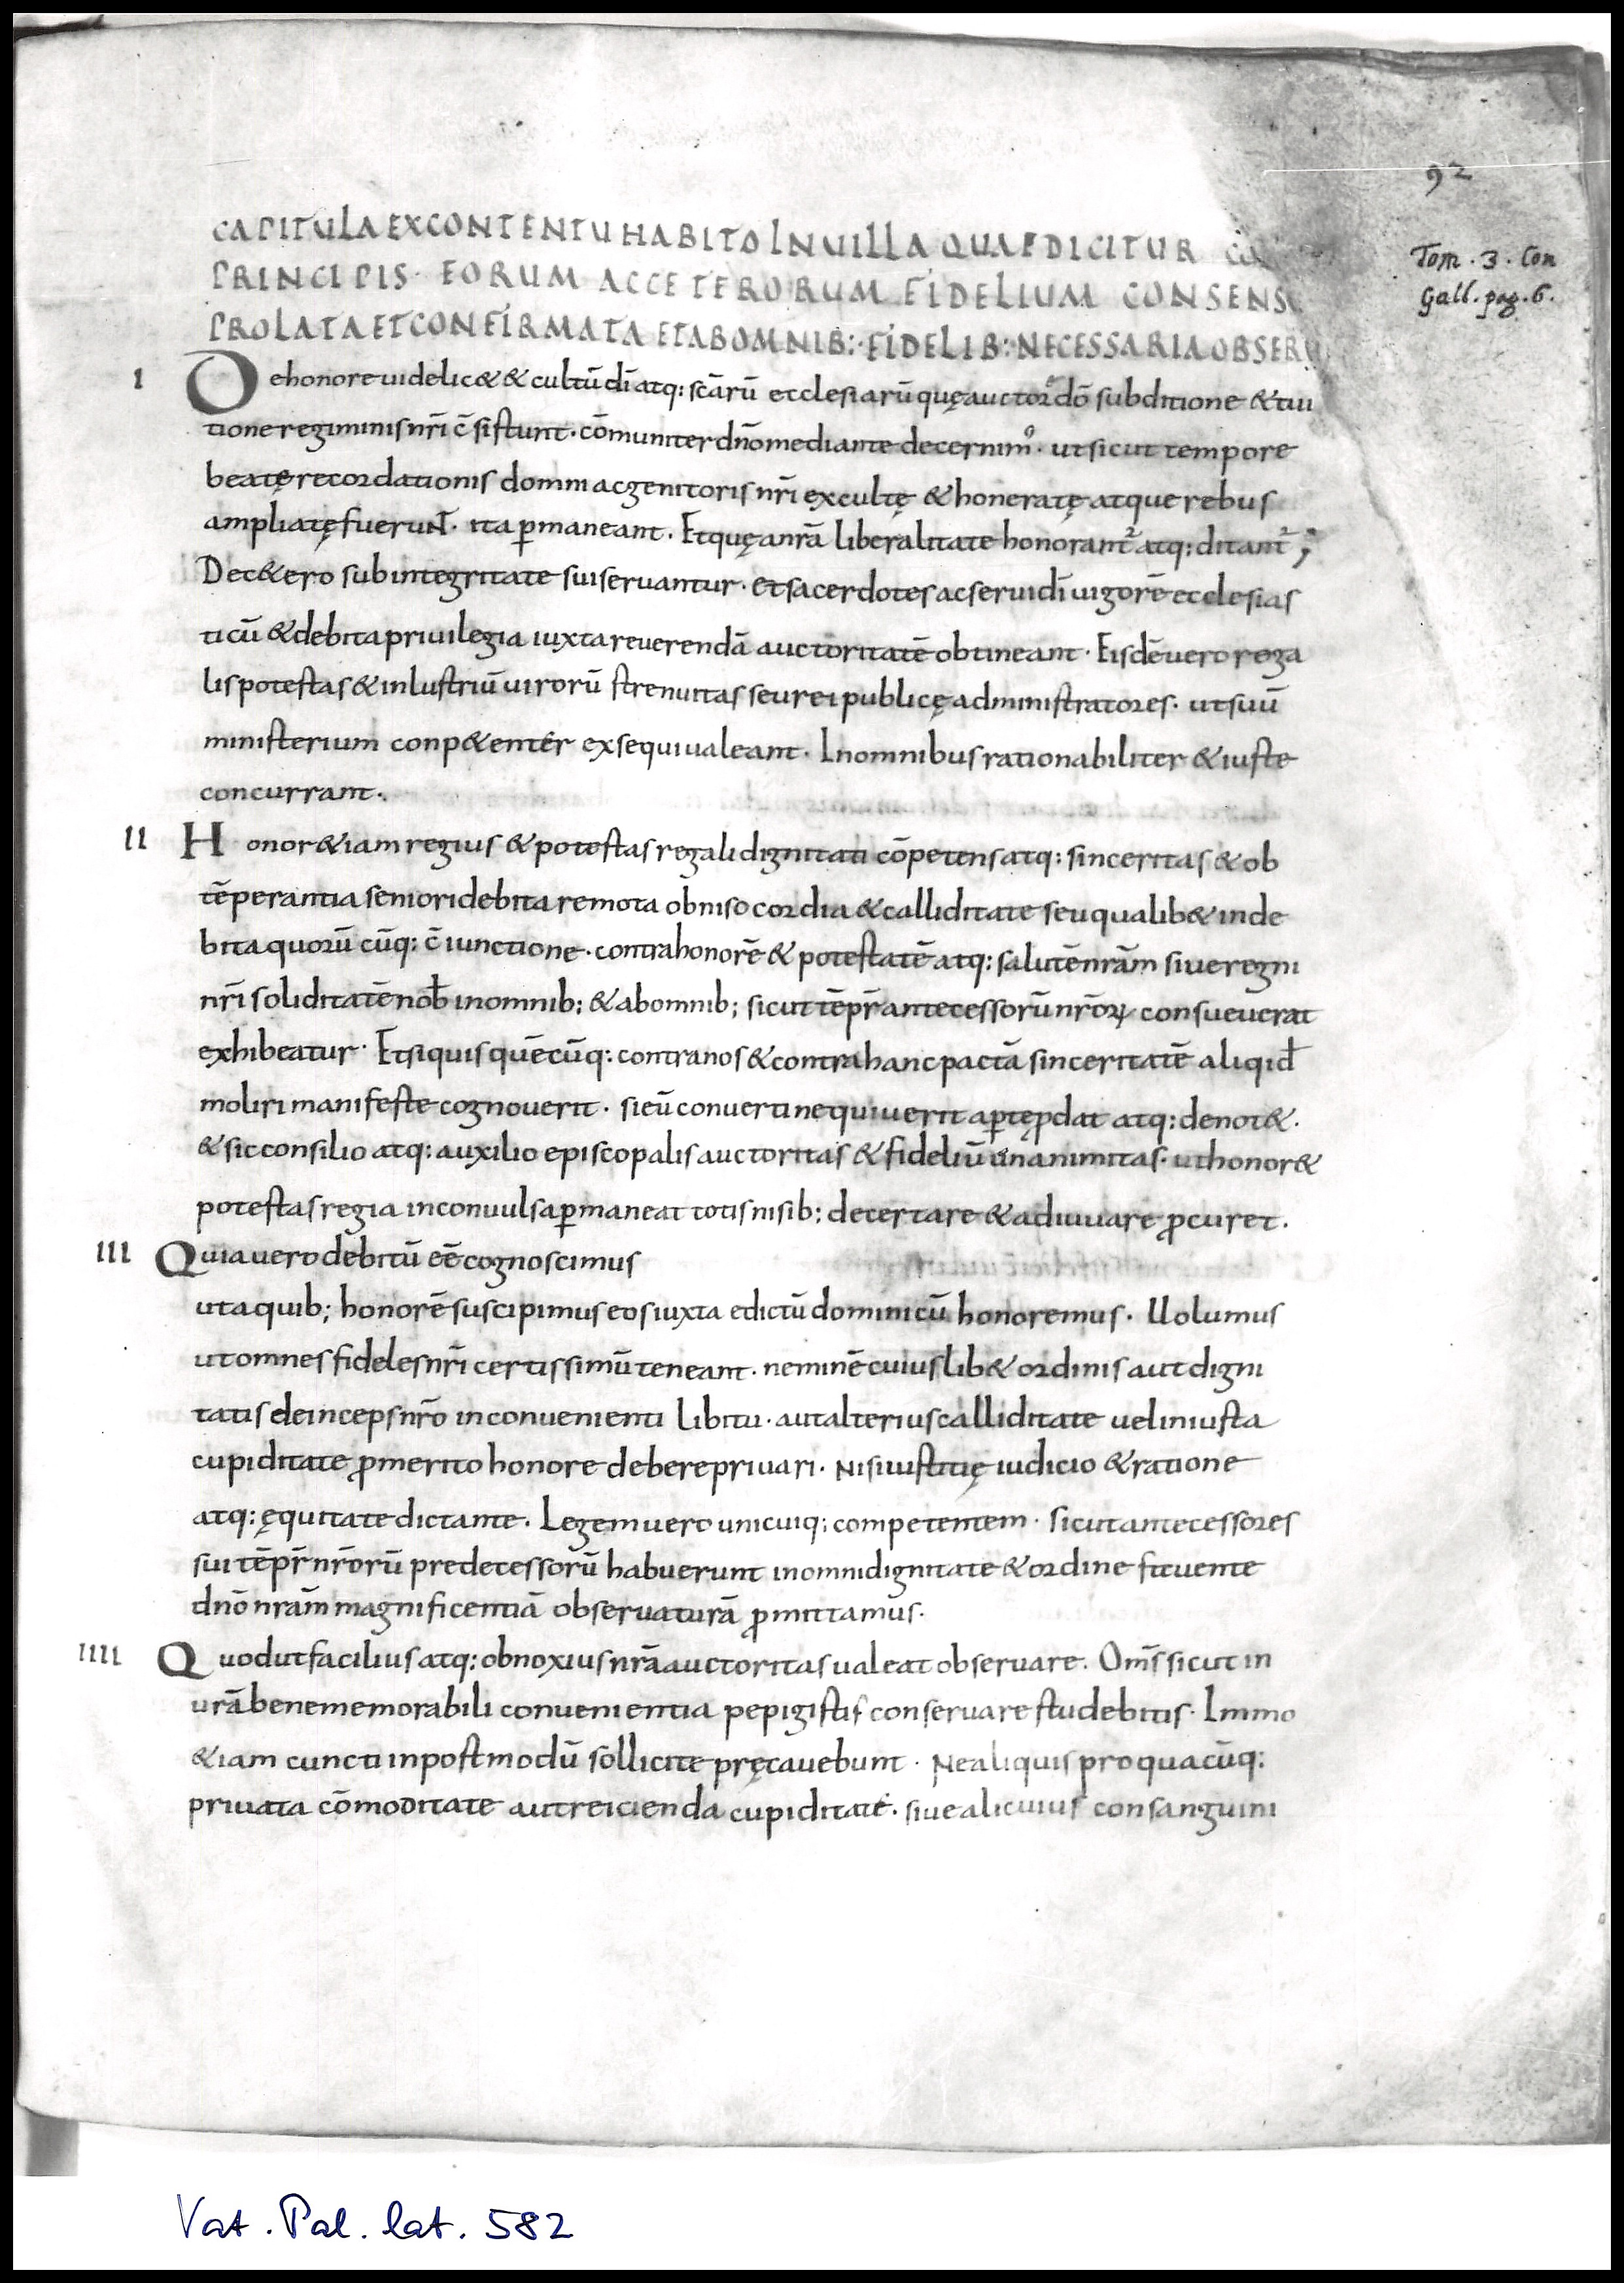 92
Tom. 3. Con
Gall. pag. 6.
CAPITULA EX CONTENTU HABITO IN UILLA QUAE DICITUR
PRINCIPIS· EORUM AC CETERORUM FIDELIUM CONSENS
PROLATA ET CONFIRMATA ET AB OMNIB:· FIDELIB: NECESSARIA OBSERU
I De honore uidelic& & cultū dī atq: scārū ecclesiarū quę auctore dō sub ditione & tui
tione regiminis nr̄i c̄sistunt· cōmuniter dn̄o mediante decernimꝰ· ut sicut tempore
beatę recordationis domni ac genitoris nr̄i excultę & honeratę atque rebus
ampliatę fuerunt̄· ita ꝑmaneant. Et quę a nr̄a liberalitate honorant᷑ atq: ditant᷑;
Dec&ero sub integritate sui seruantur· et sacerdotes ac serui dī uigorē ecclesias
ticū & debita priuilegia iuxta reuerendā auctoritatē obtineant· Eisdē uero rega
lis potestas & inlustriū uirorū strenuitas seu rei publicę administratores· ut suū
ministerium conp&enter exsequi ualeant. In omnibus rationabiliter & iuste
concurrant.
II Honor &iam regius & potestas regali dignitati cōpetens atq: sinceritas & ob
tēperantia seniori debita remota obniso cordia & calliditate seu qualib& inde
bita quorū cūq: c̄iunctione· contra honorē & potestatē atq: salutē nrām siue regni
nr̄i soliditatē nob̄ in omnib; & ab omnib; sicut tēpr̄ antecessorū nr̄oꝝ consueuerat
exhibeatur· Et si quis quēcūq: contra nos & contra hanc pactā sinceritatē aliqid̄
moliri manifeste cognouerit· si eū conuerti nequiuerit aꝑtę ꝓdat atq: denot&.
& sic consilio atq: auxilio episcopalis auctoritas & fideliū unanimitas· ut honor &
potestas regia inconuulsa ꝑmaneat totis nisib; decertare & adiuuare ꝓcuret.
III Quia uero debitū eē cognoscimus
ut a quib; honorē suscipimus eos iuxta edictū dominicū honoremus. Uolumus
ut omnes fideles nr̄i certissimū teneant· neminē cuiuslib& ordinis aut digni
tatis deinceps nr̄o inconuenienti libitu· aut alterius calliditate uel iniusta
cupiditate ꝓmerito honore debere priuari· Nisi iustitię iudicio & ratione
atq: ęquitate dictante. Legem uero unicuiq: competentem· sicut antecessores
sui tēpr̄ nr̄orū predecessorū habuerunt in omni dignitate & ordine fauente
dn̄o nrām magnificentiā obseruaturā ꝓmittamus.
IIII Quod ut facilius atq: obnoxius nr̄a auctoritas ualeat obseruare. Om̄s sicut in
urā bene memorabili conuenientia pepigistis conseruare studebitis. Immo
&iam cuncti in postmodū sollicite pręcauebunt· Ne aliquis pro quacūq:
priuata cōmoditate aut reicienda cupiditate· siue alicuius consanguini
Vat. Pal. lat. 582